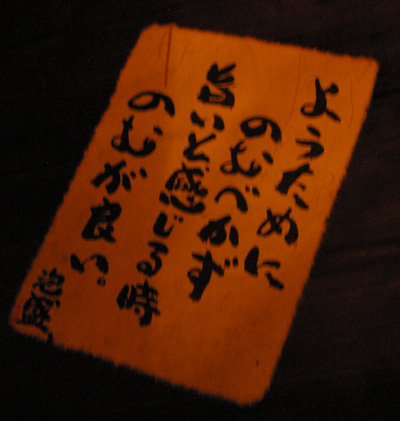 ようために
のむべかず
旨いと感じる時
のむが良い。
泡盛